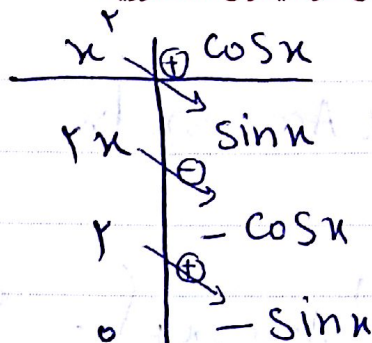 x^۲ ⊕ cosx
۲x ⊖ sinx
۲ ⊕ - cosx
۰ - sinx